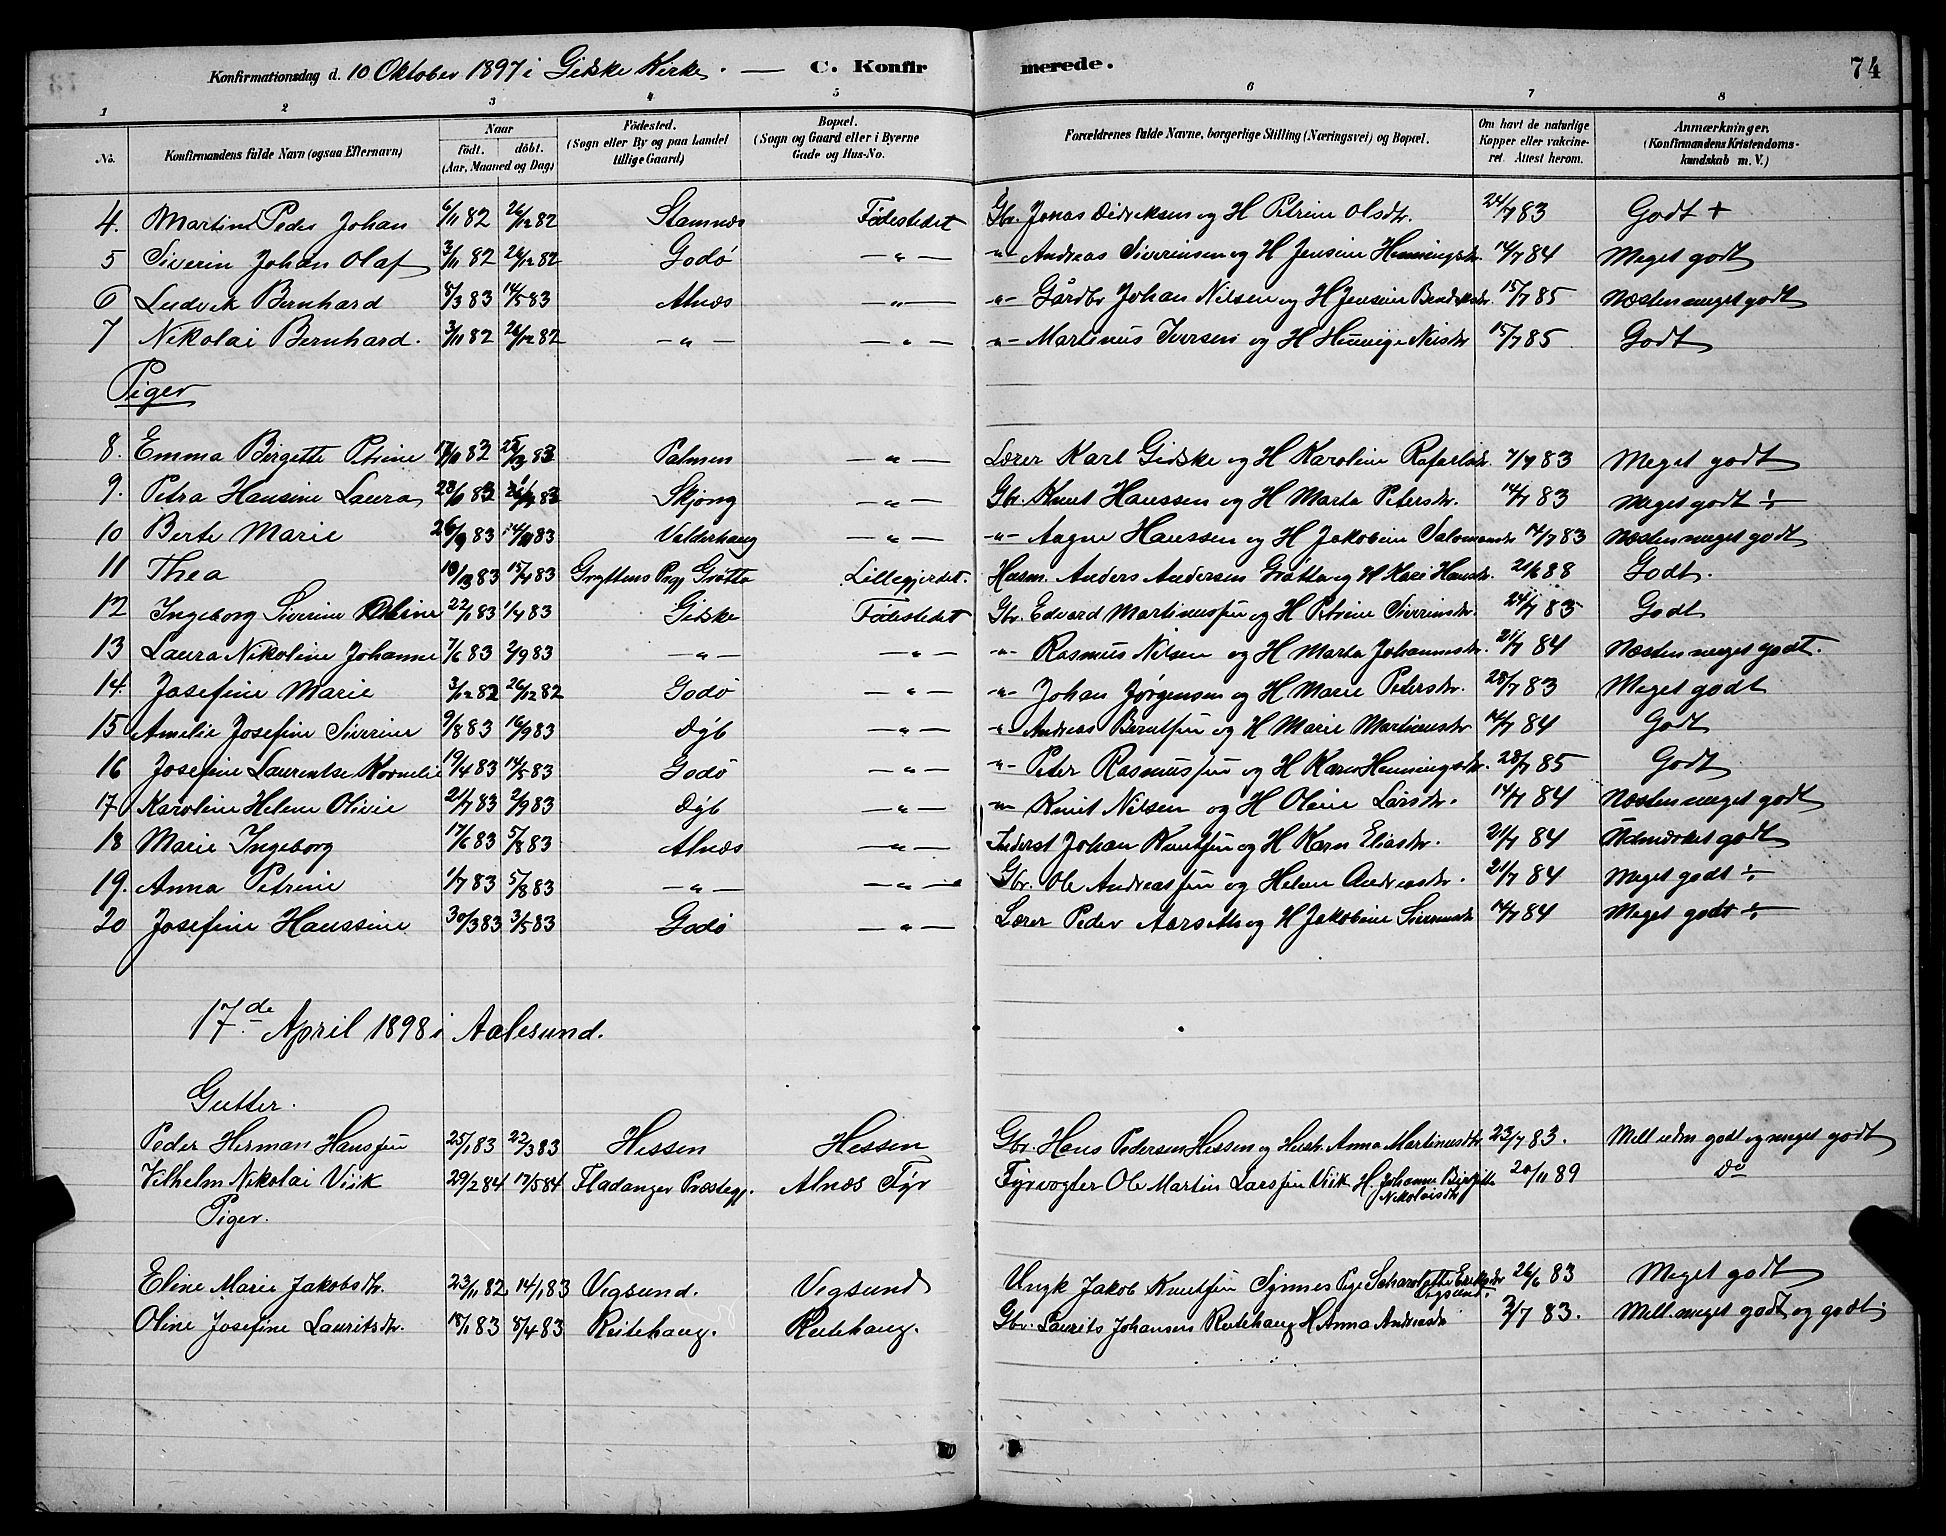 Konfirmationsdag d. 10 Oktober 1897 i Giske Kirke. — C. Konfirmerede. 74
1 2 3 4 5 6 7 8
No. Konfirmandens fulde Navn (ogsaa Efternavn) Naar født. døbt. (Aar, Maaned og Dag) Fødested. (Sogn eller By og paa Landet tillige Gaard) Bopæl. (Sogn og Gaard eller i Byerne Gade og Hus-No. Forældrenes fulde Navne, borgerlige Stilling (Næringsvei) og Bopæl. Om havt de naturlige Kopper eller vakcineret. Attest herom. Anmærkninger. (Konfirmandens Kristendomskundskab m. V.)
4. Martin Peder Johan 6/11 82 26/12 82 Stamnes Fødestedet Gbr. Jonas Didriksen og H Petrine Olsdtr. 24/7 83 Godt +
5 Siverin Johan Olaf 3/11 82 26/12 82 Godø —"— "- Andreas Siverinsen og H Jensine Henningsdtr. 14/7 84 Meget godt
6 Ludvik Bernhard 8/3 83 14/5 83 Alnes —"— "- Gårdbr Johan Nilsen og H Jensine Bendiksdtr. 15/7 85 Næsten meget godt
7 Nikolai Bernhard. 3/11 82 26/12 82 —"— —"— "- Martinus Iversen og H 15/7 85 Godt
Piger
8. Emma Birgette Petrine 17/11 82 83 Palmen —"— Lærer Karl Gidske og H Karoline Rafaelsdtr. 7/7 83 Meget godt
9. Petra Hansine Laura 83 83 Skjong —"— Gbr. Knut Hanssen og H Marta Petersdtr. 14/7 83 Meget godt ÷
10 Berte Marie 26/9 83 14/11 83 Valderhaug —"— "- Aagne Hanssen og H Jakobine Salomonsdtr 14/7 83 Næsten meget godt
11 Thea 83 15/4 83 Gryttens Pgj. Grøtta Lillegjerdet. Husm. Anders Andersen Grøtta og H Kari Hansdtr. 21/6 88 Godt.
12 Ingeborg Siverine Oline 22/1 83 1/4 83 Giske Fødestedet Gbr. Edvard Martinussen og H Petrine Siverinsdtr. 24/7 83 Godt
13 Laura Nikoline Johanne 7/6 83 2/9 83 —"— —"— "- Rasmus Nilsen og H Marta Johannsdtr. 21/7 84 Næsten meget godt.
14. Josefine Marie 3/12 82 26/12 82 Godø —"— "- Johan Jørgensen og H Marie Petersdtr. 28/7 83 Meget godt
15 Amelie Josefine Siverine 9/8 83 16/9 83 Dyb —"— "- Andreas Berntsen og H Marie Martinusdtr 14/7 84 Godt
16 Josefine Laurentse Kornelie 19/4 83 14/5 83 Godø —"— "- Peter Rasmussen og H Karen Henningsdtr. 28/7 85 Godt
17 Karoline Helene Olivie 21/7 83 2/9 83 Dyb —"— "- Knut Nilsen og H Oline Larsdtr. 14/7 84 Næsten meget godt
18 Marie Ingeborg 17/6 83 5/8 83 Alnes —"— Inderst Johan Knutsen og H Karn Eliasdtr. 21/7 84 Udmærket godt
19. Anna Petrine 1/7 83 5/8 83 —"— —"— Gbr. Ole Andreassen og Helene Andreasdtr. 21/7 84 Meget godt ÷
20 Josefine Hanssine 30/3 83 3/5 83 Godø —"— Lærer Peder Aarseth og H Jakobine Siverinsdtr 14/7 84 Meget godt ÷
17de April 1898 i Aalesund.
Gutter.
Peder Herman Hanssen 25/1 83 22/3 83 Hessen Hessen Gbr. Hans Pedersen Hessen og Hustr. Anna Martinusdtr. 23/7 83. Mell. udm godt og meget godt
Vilhelm Nikolai Viik 29/2 84 17/5 84 Fladanger Præstegj. Alnes Fyr Fyrvogter Ole Martin Larssen Viik H. Johanne Birgitte Nikolaisdtr 20/11 89 Do
Piger.
Eline Marie Jakobsdtr. 23/11 82 14/1 83 Vegsund. Vegsund Ungk Jakob Knutsen Synnes Pige Scharlotte Eriksdtr Vegsund. 26/6 83 Meget godt
Oline Josefine Lauritsdtr. 18/1 83 8/4 83 Reitehaug. Reitehaug. Gbr. Laurits Johansen Reitehaug H Anna Andreasdtr 2/7 83. Mell. meget godt og godt.